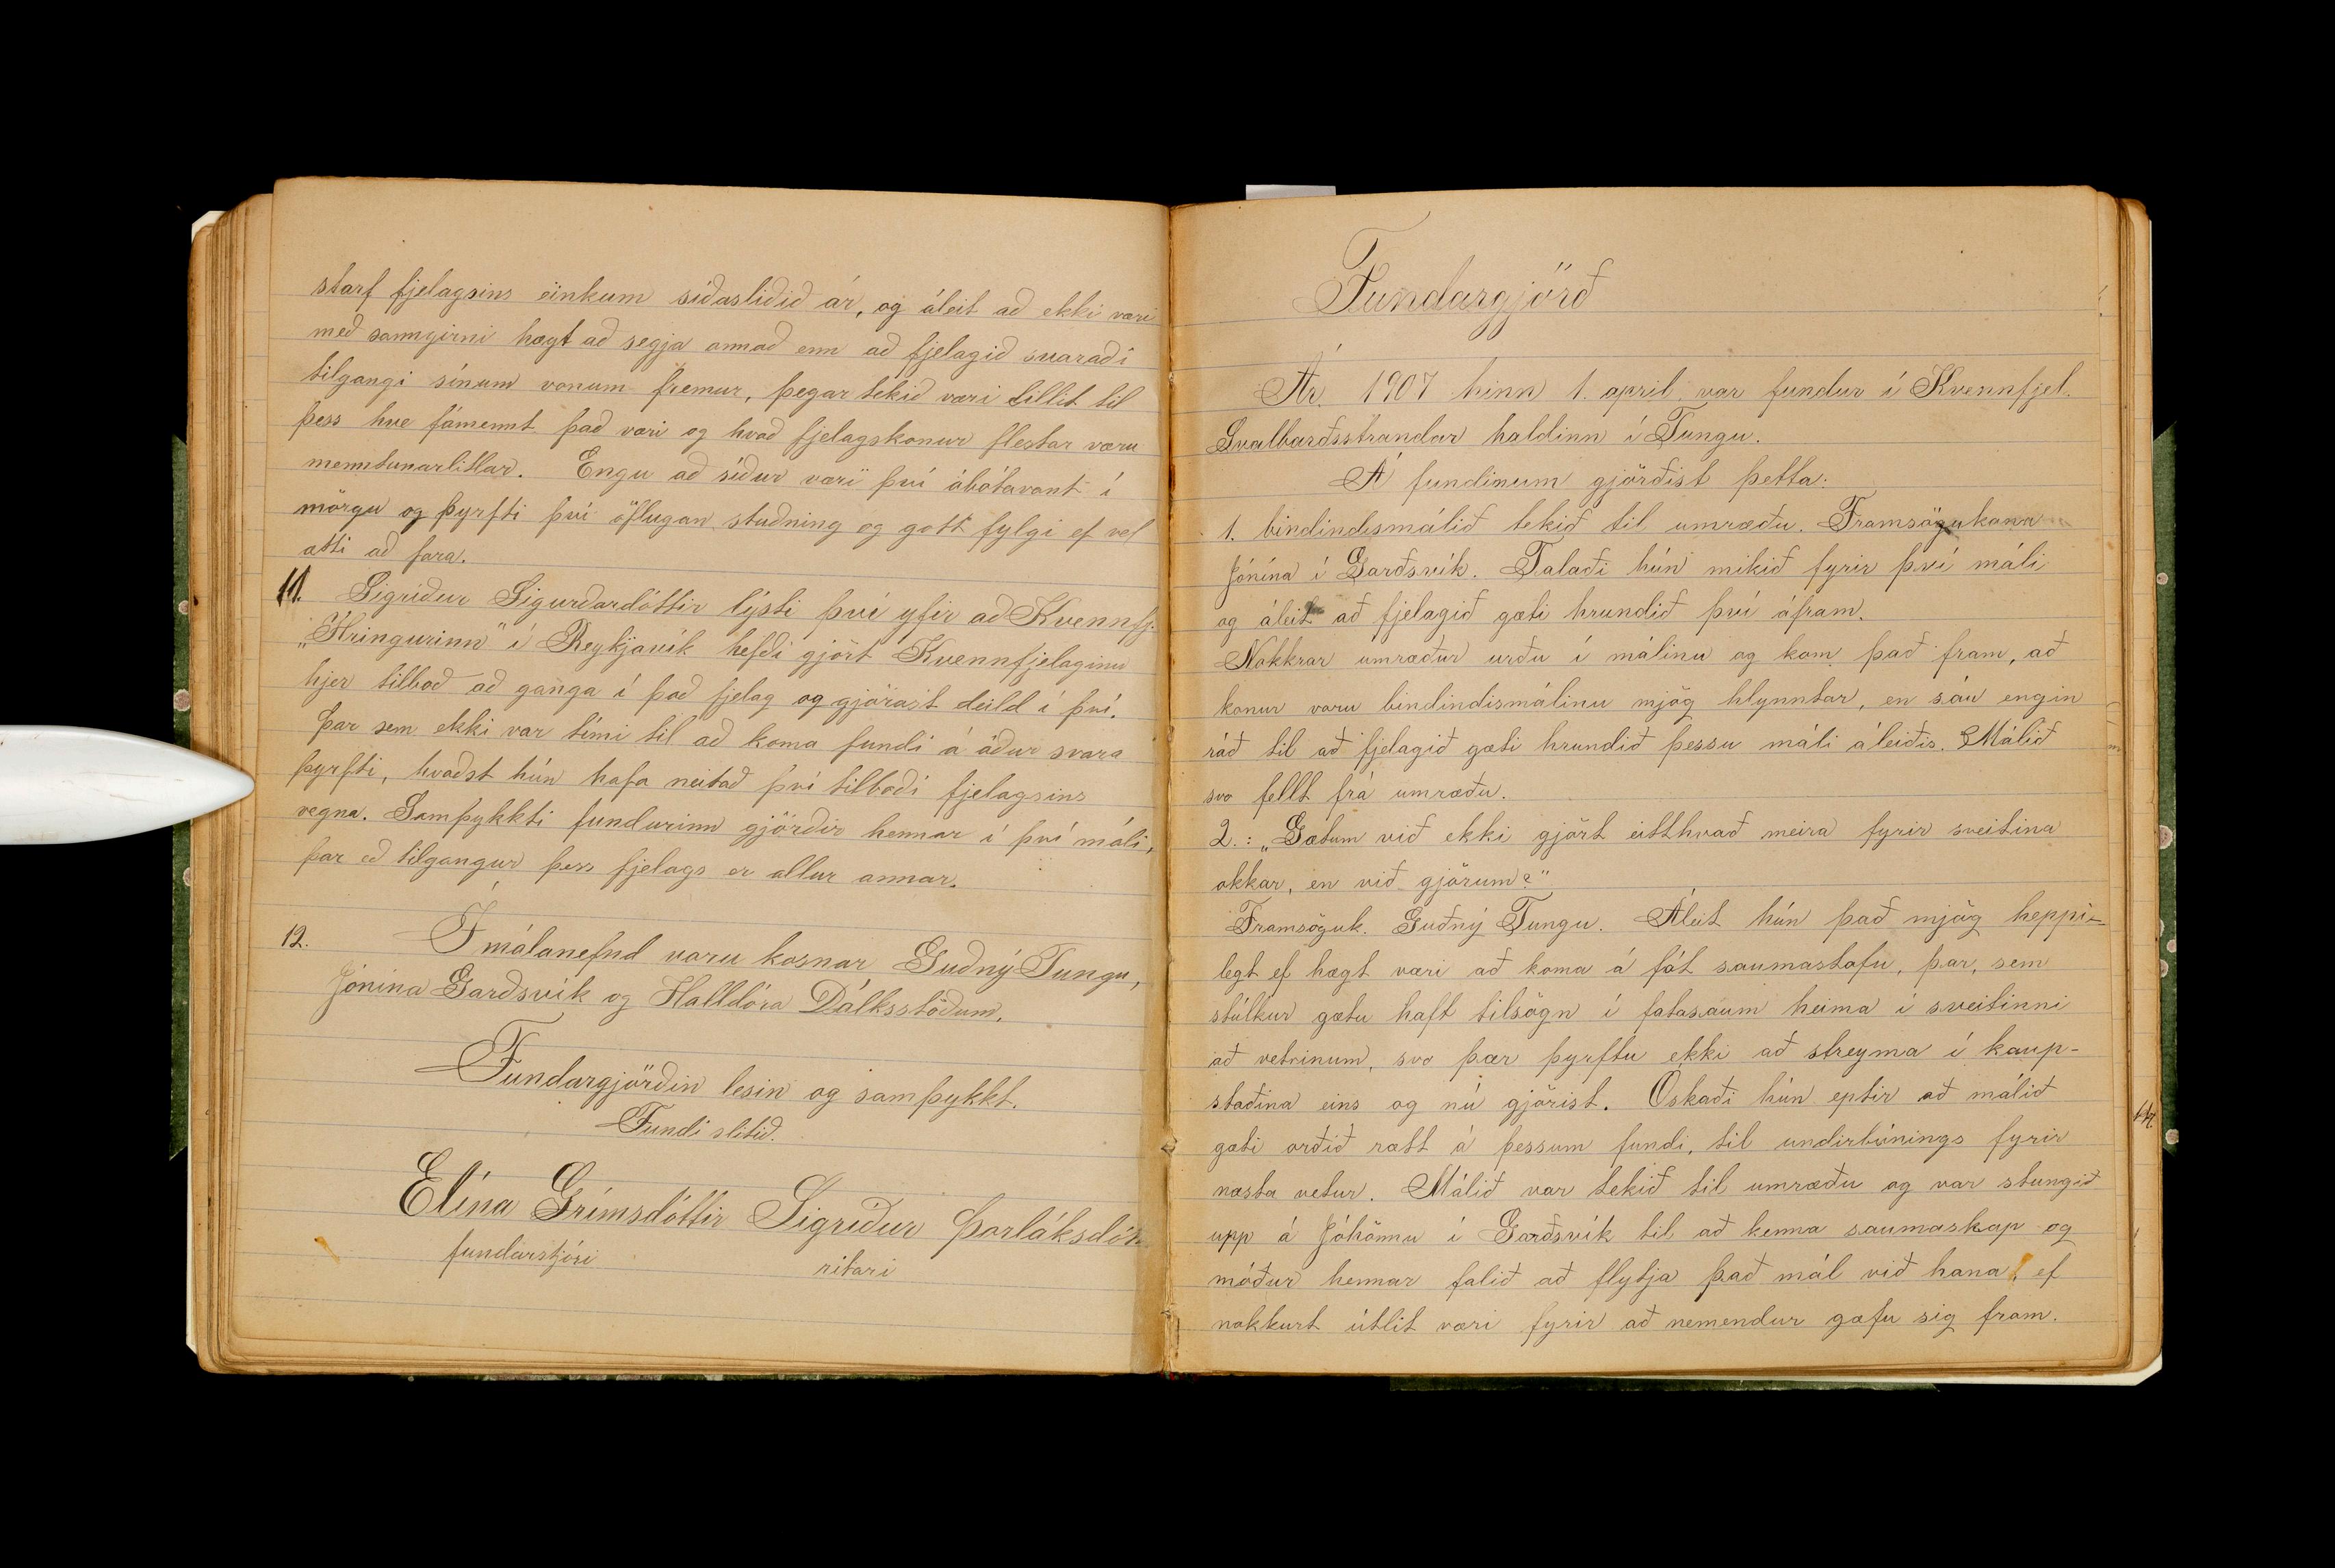 starf fjelagsins einkum síðasliðið ár, og áleit að ekki væri
með sanngirni hægt að segja annað enn að fjelagið svaraði
tilgangi sínum vonum fremur, þegar tekið væri tillit til
þess hve fámennt það væri og hvað fjelagskonur flestar væru
menntunarlitlar. Engu að síður væri því ábótavant í
mörgu og þyrfti því öflugan stuðning og gott fylgi ef vel
ætti að fara.
11. Sigríður Sigurðardóttir lýsti því yfir að Kvennfj.
„Hringurinn" í Reykjavík hefði gjört Kvennfjelaginu
hjer tilboð að ganga í það fjelag og gjörast deild í því.
Þar sem ekki var tími til að koma fundi á áður svara
þyrfti, kvaðst hún hafa neitað því tilboði fjelagsins
vegna. Samþykkti fundurinn gjörðir hennar í því máli,
þar eð tilgangur þess fjelags er allur annar.
12. Í málanefnd voru kosnar Guðný Tungu,
Jónína Garðsvík og Halldóra Dálksstöðum.
Fundargjörðin lesin og samþykkt.
Fundi slitið.
Elína Grímsdóttir Sigríður Þorláksdótt
fundarstjóri ritari
Fundargjörð
Ár 1907 hinn 1. april var fundur í Kvennfjel.
Svalbarðsstrandar haldinn í Tungu.
Á fundinum gjörðist þetta:
1. bindindismálið tekið til umræðu. Framsögukona
Jónína í Garðsvík. Talaði hún mikið fyrir því máli
og áleit að fjelagið gæti hrundið því áfram.
Nokkrar umræður urðu í málinu og kom það fram, að
konur voru bindindismálinu mjög hlynntar, en sáu engin
ráð til að fjelagið gæti hrundið þessu máli áleiðis. Málið
svo fellt frá umræðu.
2.: „Gætum við ekki gjört eitthvað meira fyrir sveitina
okkar, en við gjörum?"
Framsöguk. Guðný Tungu. Áleit hún það mjög heppi-
legt ef hægt væri að koma á fót saumastofu, þar, sem
stúlkur gætu haft tilsögn í fatasaum heima í sveitinni
að vetrinum, svo þær þyrftu ekki að streyma í kaup-
staðina eins og nú gjörist. Óskaði hún eptir að málið
gæti orðið rætt á þessum fundi, til undirbúnings fyrir
næsta vetur. Málið var tekið til umræðu og var stungið
upp á Jóhönnu í Garðsvík til að kenna saumaskap og
móður hennar falið að flytja það mál við hana, ef
nokkurt útlit væri fyrir að nemendur gæfu sig fram.